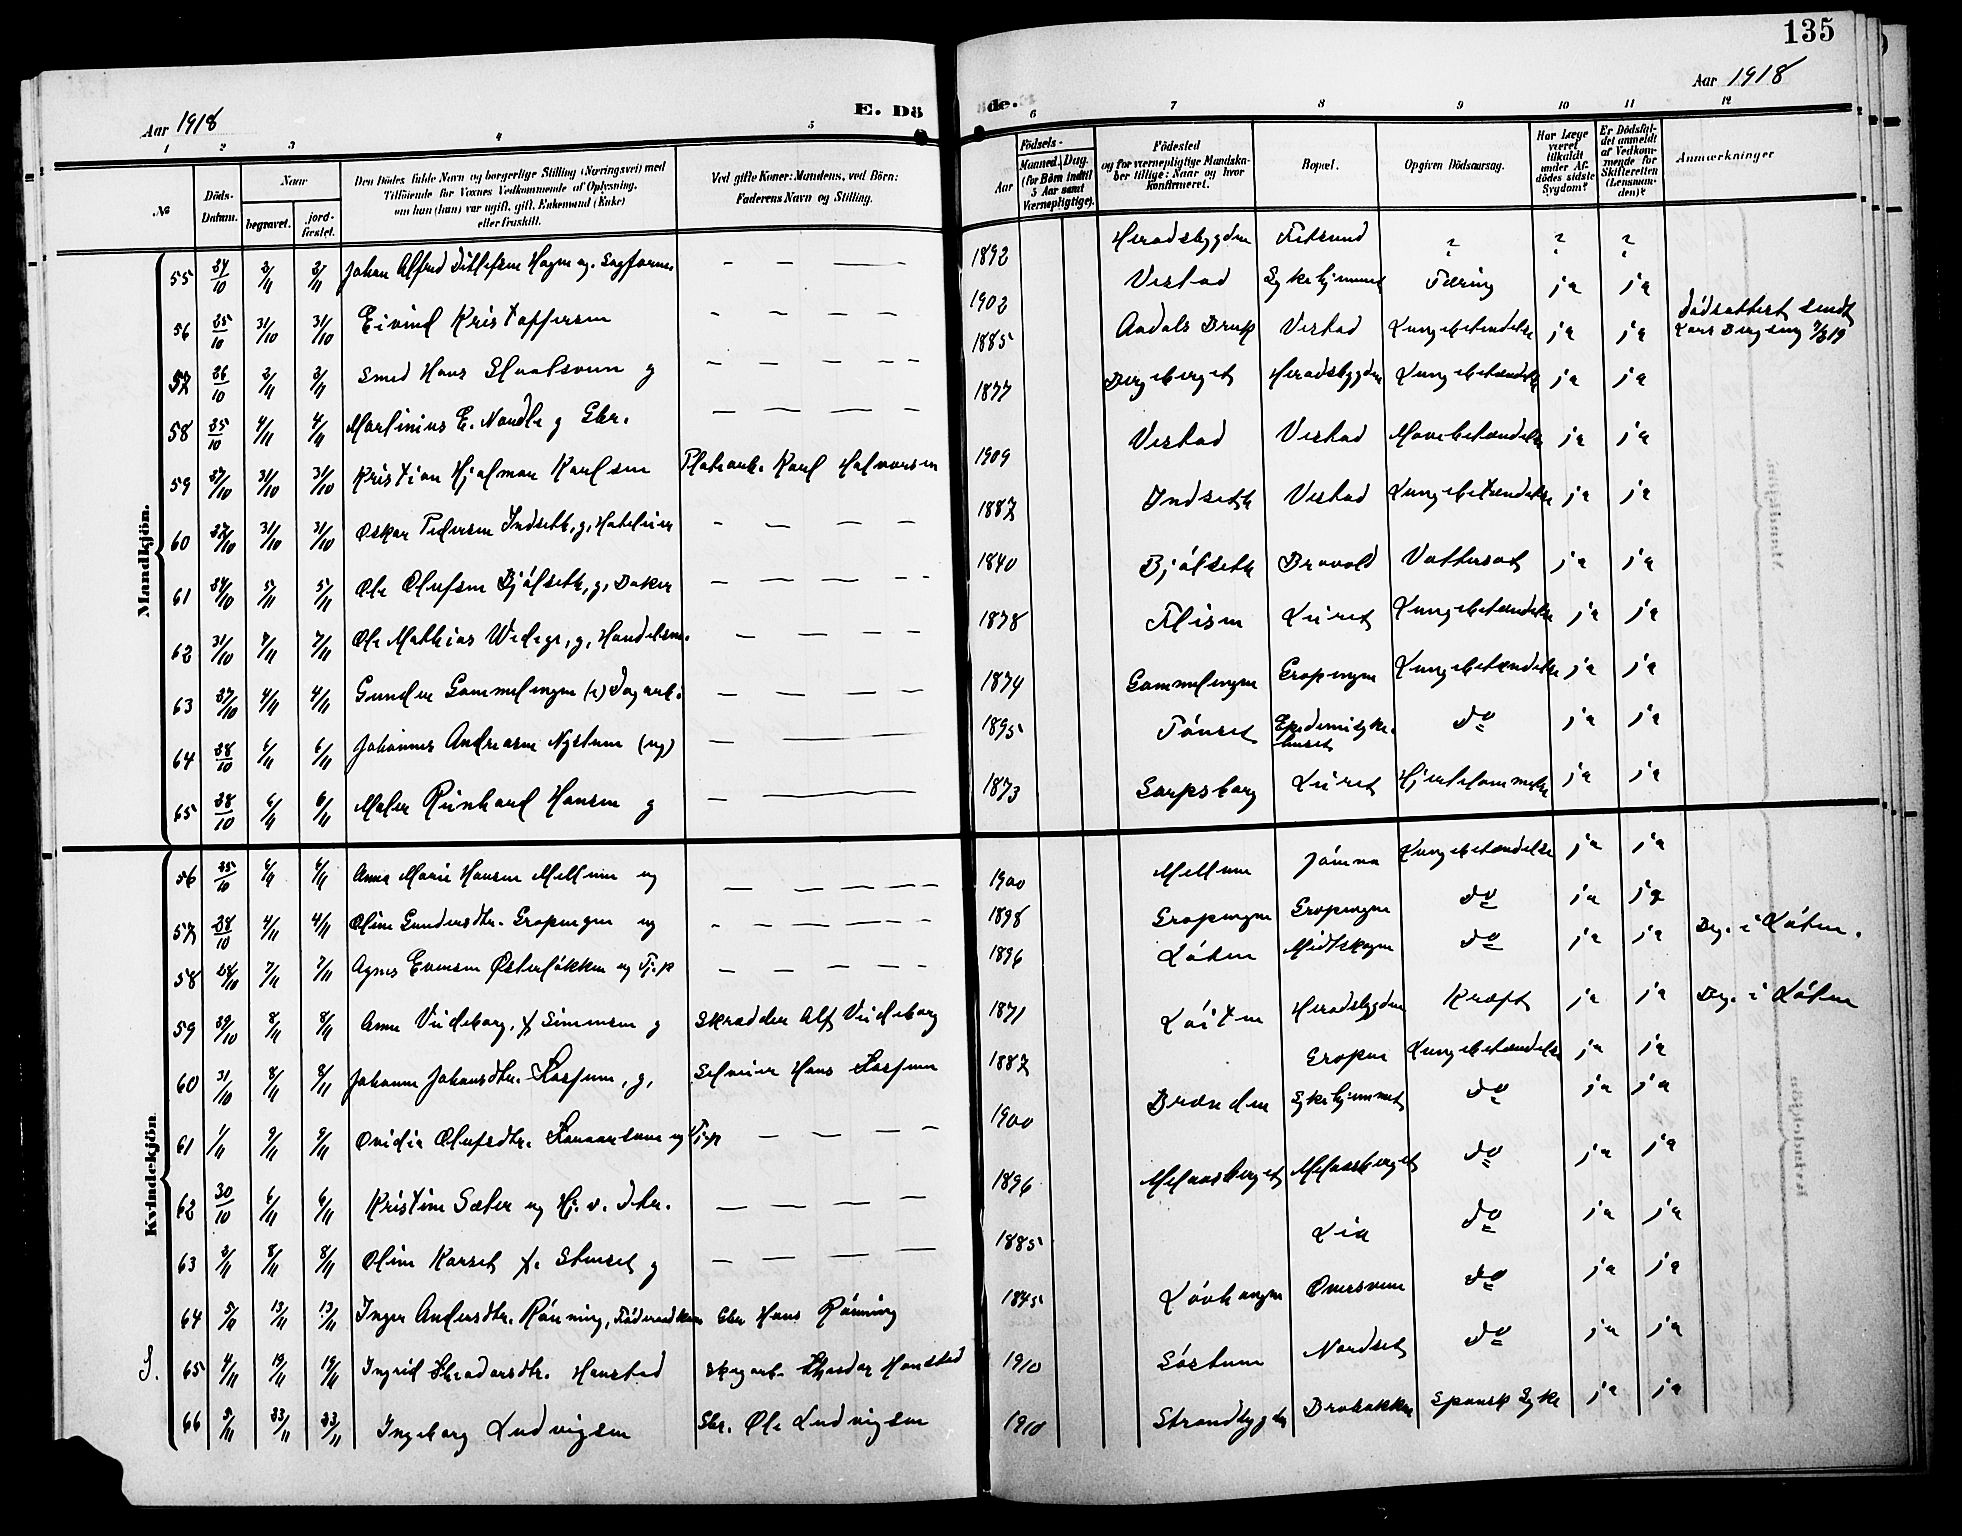 135
Aar 1918
E. Döde.
Aar 1918
1 2 3 4 5 6 7 8 9 10 11 12
No
Döds-Datum.
Naar
begravet.
jord-fæstet.
Den Dödes fulde Navn og borgerlige Stilling (Næringsvei) med
Tilföiende for Voxnes Vedkommende af Oplysning,
om hun (han) var ugift, gift, Enkemand (Enke)
eller fraskilt.
Ved gifte Koner: Mandens, ved Börn:
Faderens Navn og Stilling.
Födsels-
Aar
Maaned. Dag.
(for Börn indtil
5 Aar samt
Værnepligtige).
Födested
og for værnepligtige Mandska-
ber tillige: Naar og hvor
konfirmeret.
Bopæl.
Opgiven Dödsaarsag.
Har Læge
været
tilkaldt
under Af-
dödes sidste
Sygdom?
Er Dödsfal-
det anmeldt
af Vedkom-
mende for
Skifteretten
(Lensman-
den)?
Anmærkninger
Mandkjön.
55 24/10 2/11 2/11 Johan Alfred Ditlefsen Hagen ug. Sagförm. — — — 1892 Heradsbygden Fetsund ? ? ?
56 25/10 31/10 31/10 Eivind Kristoffersen — — — — 1902 Vestad Sykehjemmet Tæring ja ja
57 26/10 2/11 2/11 Smed Hans Skaalsveen g — — — — 1885 Aadals Bruk Vestad Lungebetændelse ja ja Dödsattest sendt
58 25/10 4/11 4/11 Martinius E. Nordli g Gbr. — — — — 1877 Bergeberget Heradsbygden Lungebetændelse ja ja
59 27/10 31/10 31/10 Kristian Hjalmar Karlsen Platearb. Karl Halvorsen 1909 Vestad Vestad Mavebetændelse ja ja
60 27/10 31/10 31/10 Oskar Pedersen Indseth, g, Hoteleier — — — — 1887 Indseth Vestad Lungebetændelse ja ja
61 24/10 5/11 5/11 Ole Olufsen Bjölseth, g, Baker — — — — 1840 Bjölseth Bravold Vattersot ja ja
62 31/10 7/11 7/11 Ole Mathias Wedege, g, Handelsm. — — — — 1878 Flisen Leiret Lungebetændelse ja ja
63 27/10 4/11 4/11 Gunder Gammelengen (e) Dagarb. — — — — 1874 Gammelengen Gropengen Lungebetændelse ja ja
64 28/10 6/11 6/11 Johannes Andreasen Nystuen (ug) — — — 1895 Tönset Epedemisyke-huset do ja ja
65 28/10 6/11 6/11 Maler Reinhard Hansen g — — — 1873 Sarpsborg Leiret Hjertelammelse ja ja
Kvindekjön
56 25/10 6/11 6/11 Anna Marie Hansen Mellum ug — — — — 1900 Mellum Jömna Lungebetændelse ja ja
57 28/10 4/11 4/11 Oline Gundersdtr. Gropengen ug — — — — 1898 Gropengen Gropengen do ja ja
58 28/10 7/11 7/11 Agnes Evensen Österlökken ug Tj.p — — — — 1896 Löten Midtskogen do ja ja Beg. i Löten.
59 29/10 8/11 8/11 Anne Veideborg, f. Simensen g Skrædder Alf Veideborg 1871 Löiten Heradsbygden Kræft ja ja Beg. i Löten
60 31/10 8/11 8/11 Johanne Johansdtr. Kasfuen, g, Selveier Hans Kasfuen 1887 Gropen Lungebetændelse ja ja
61 1/11 9/11 9/11 Ovidia Olufsdtr. ug Tj.p — — — 1900 Brænden Sykehjemmet do ja ja
62 30/10 6/11 6/11 Kristine Sæter ug Hj. v. dtr. — — — — 1896 Melaasberget Melaasberget do ja ja
63 2/11 8/11 8/11 Oline Karset f. Stenset g — — — — 1885 Lia do ja ja
64 5/11 13/11 13/11 Inger Andersdtr. Rönning, Föderaadskone Gbr Hans Rönning 1845 Lövhaugen Oversveen do ja ja
S. 65 4/11 19/11 19/11 Ingrid Theodorsdtr. Hanstad Skogarb. Theodor Hanstad 1910 Söstuen Nordset do ja ja
66 5/11 23/11 23/11 Ingeborg Ludvigsen Gbr. Ole Ludvigsen 1910 Strandbygda Brobakken Spansk Syke ja ja